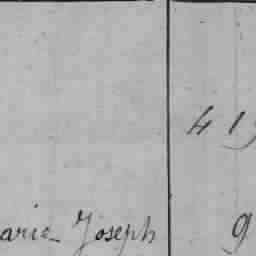 41
arie Joseph 9